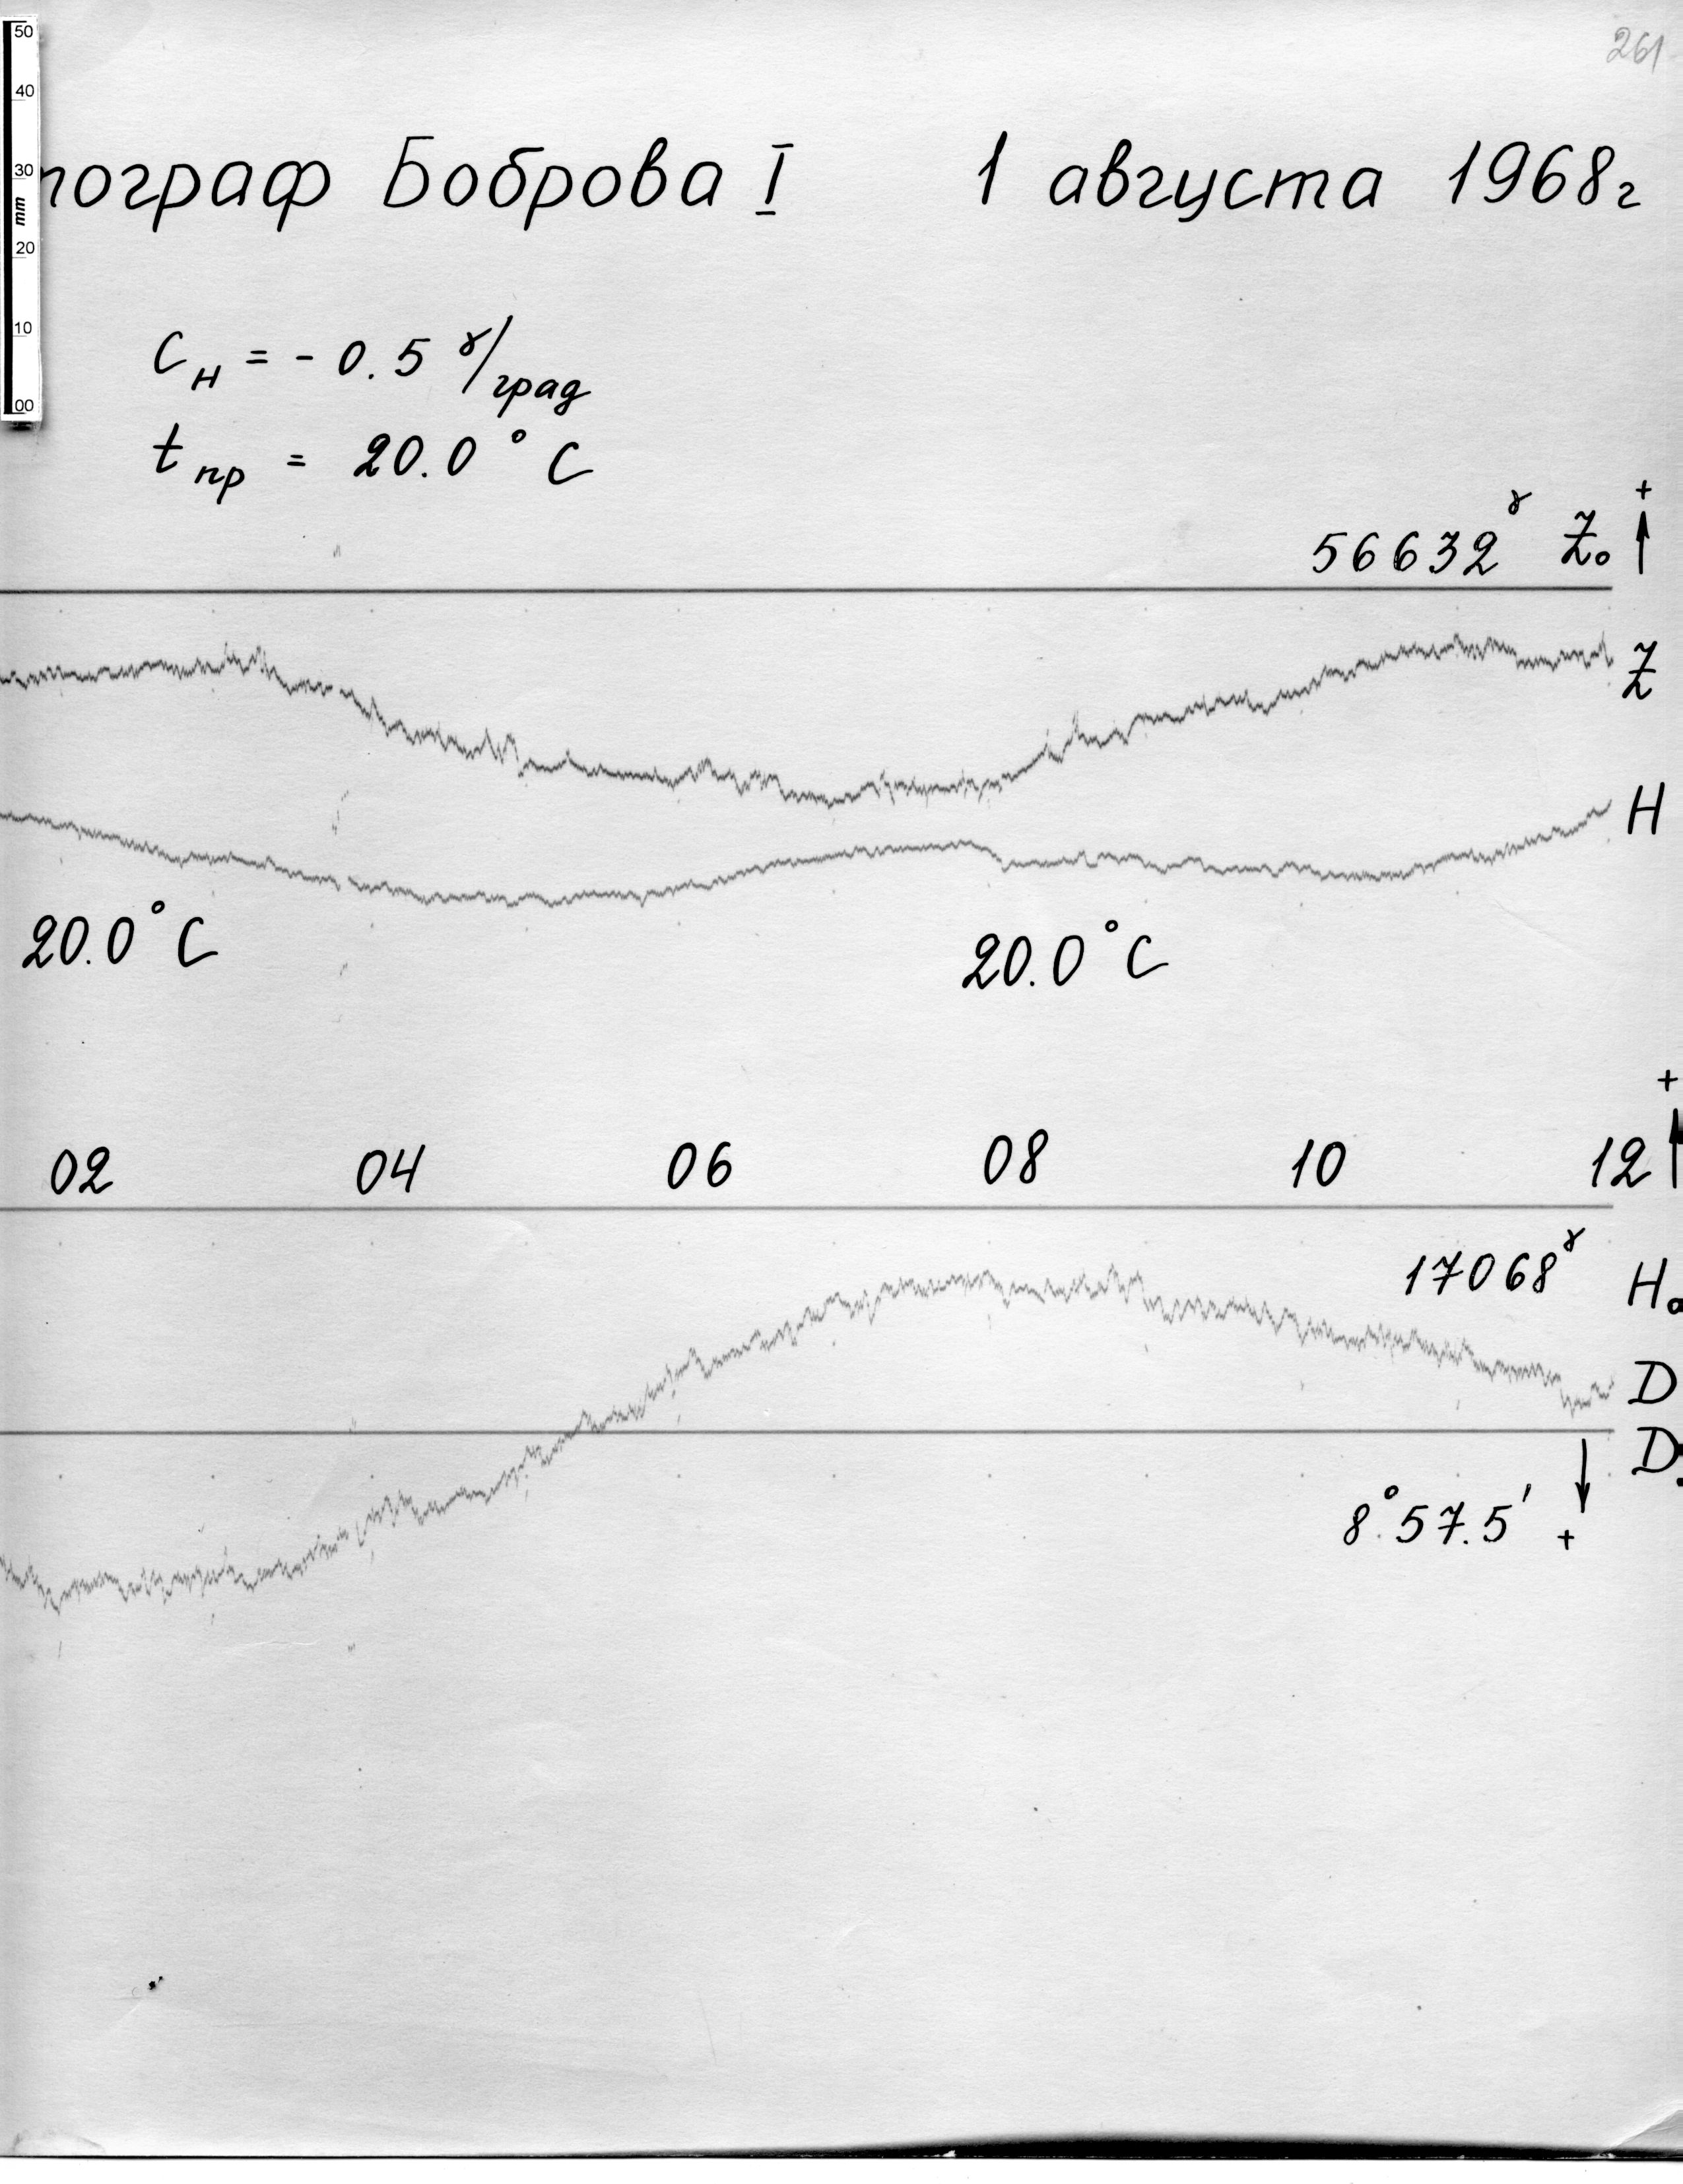 261
50
40
30
mm
20
10
00
пограф Боброва I 1 августа 1968г
C_H = - 0.5 γ/град
t пр = 20.0 ° C
56632 γ Z₀ +
Z
H
20.0°C 20.0°C
+
02 04 06 08 10 12
17068 γ H₀
D
D₀
8°57.5' +